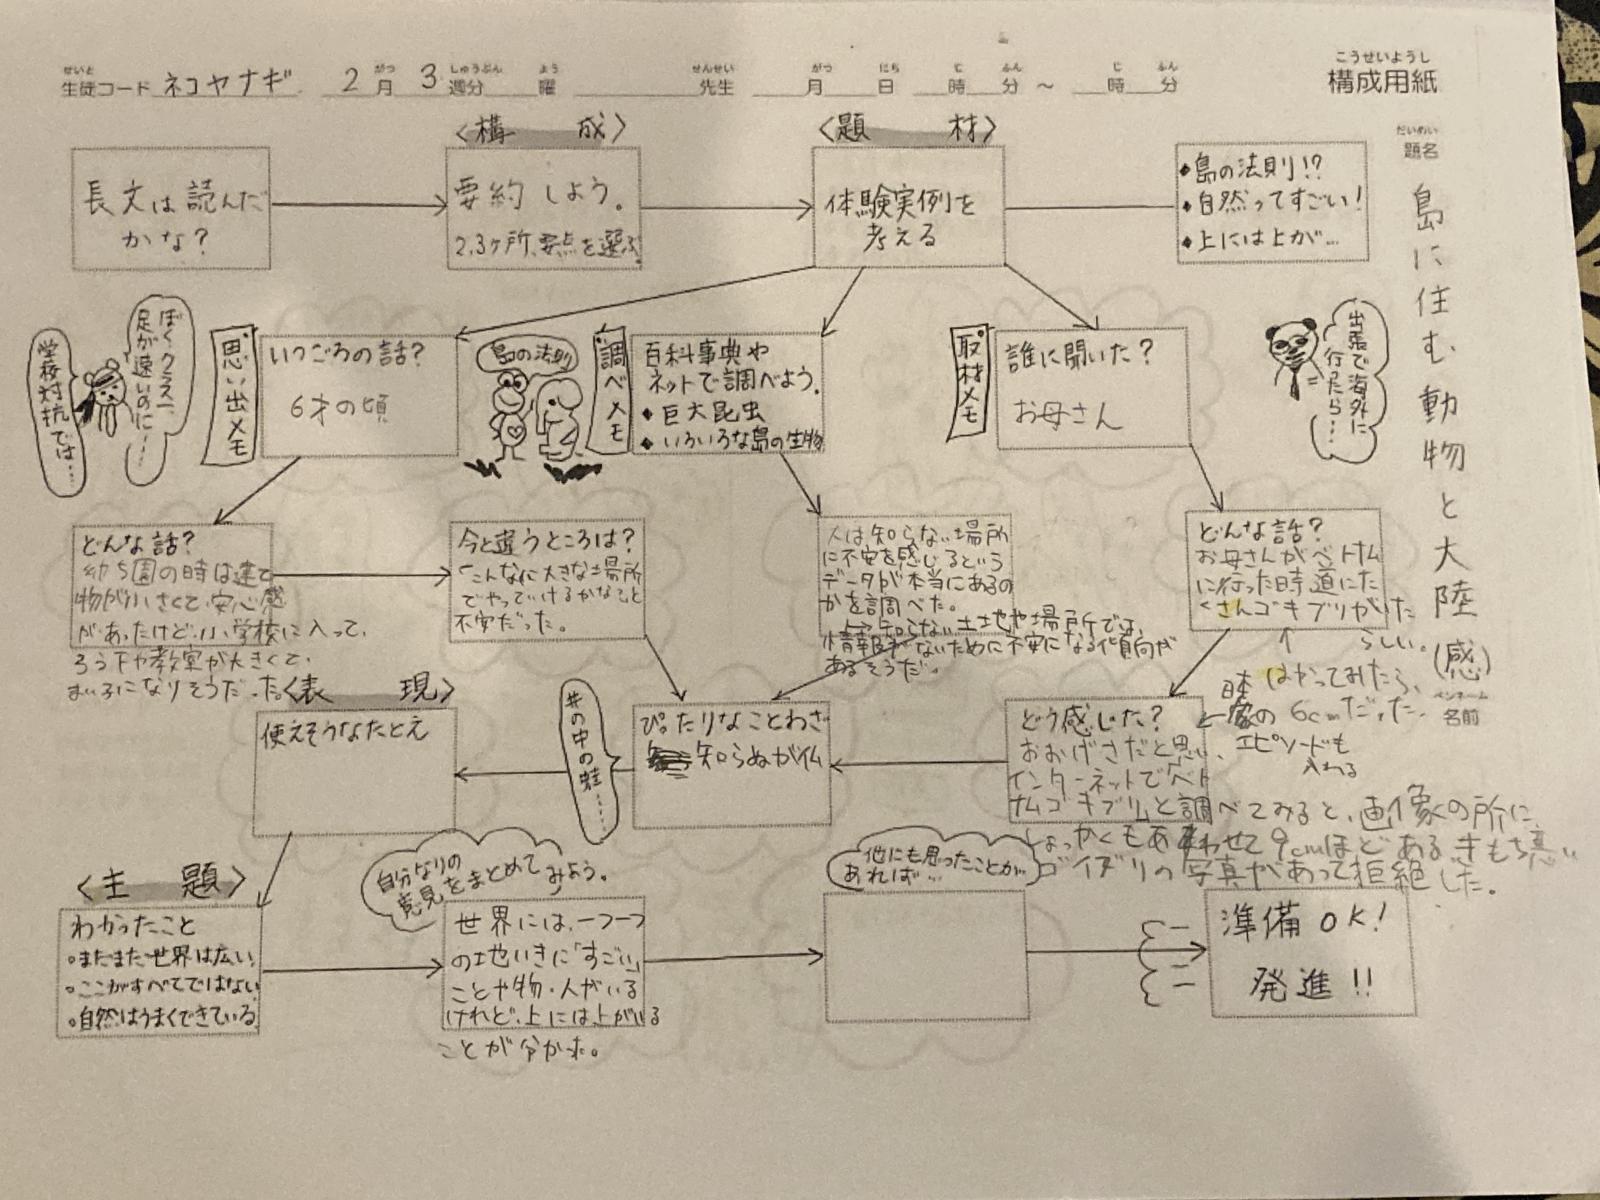 こうせいようし
構成用紙
せいと がつ しゅうぶん よう せんせい がつ にち じ ふん じ ふん
生徒コード ネコヤナギ 2月 3週分 曜 先生 月 日 時 分 ～ 時 分
だいめい
題名
島に住む動物と大陸(感)
ペンネーム
名前
〈構 成〉
〈題 材〉
長文は読んだ
かな？
要約しよう。
2,3ヶ所、要点を選ぶ。
体験実例を
考える
◆島の法則!?
◆自然ってすごい！
◆上には上が…
ぼく、クラス一、
足が速いのに……
学校対抗では…
思い出メモ
いつごろの話？
6才の頃
島の法則
調べメモ
百科事典や
ネットで調べよう。
◆巨大昆虫
◆いろいろな島の生物
取材メモ
誰に聞いた？
お母さん
出張で海外に
行ったら…
どんな話？
幼ち園の時は建て
物が小さくて安心感
があったけど、小学校に入って、
ろう下や教室が大きくて、
まい子になりそうだった。
今と違うところは？
「こんなに大きな場所
でやっていけるかな」と
不安だった。
人は知らない場所
に不安を感じるという
データが本当にあるの
かを調べた。
→知らない土地や場所では、
情報がないために不安になる傾向が
あるそうだ。
どんな話？
お母さんがベトナム
に行った時道にた
くさんゴキブリがいた
らしい。
↑
はかってみたら、
日本
の6cmだった。
エピソードも
入れる
〈表 現〉
使えそうなたとえ
井の中の蛙……
ぴったりなことわざ
知らぬが仏
どう感じた？
おおげさだと思い、
インターネットで「ベト
ナムゴキブリ」と調べてみると、画像の所に
しょっかくもあわせて9cmほどあるきもち悪い
ゴキブリの写真があって拒絶した。
〈主 題〉
わかったこと
・またまた世界は広い。
・ここがすべてではない
・自然はうまくできている。
自分なりの
意見をまとめて
みよう。
世界には、一つ一つ
の地いきに「すごい」
ことや物・人がいる
けれど、上には上がいる
ことが分かった。
他にも思ったことが
あれば…
準備OK!
発進!!